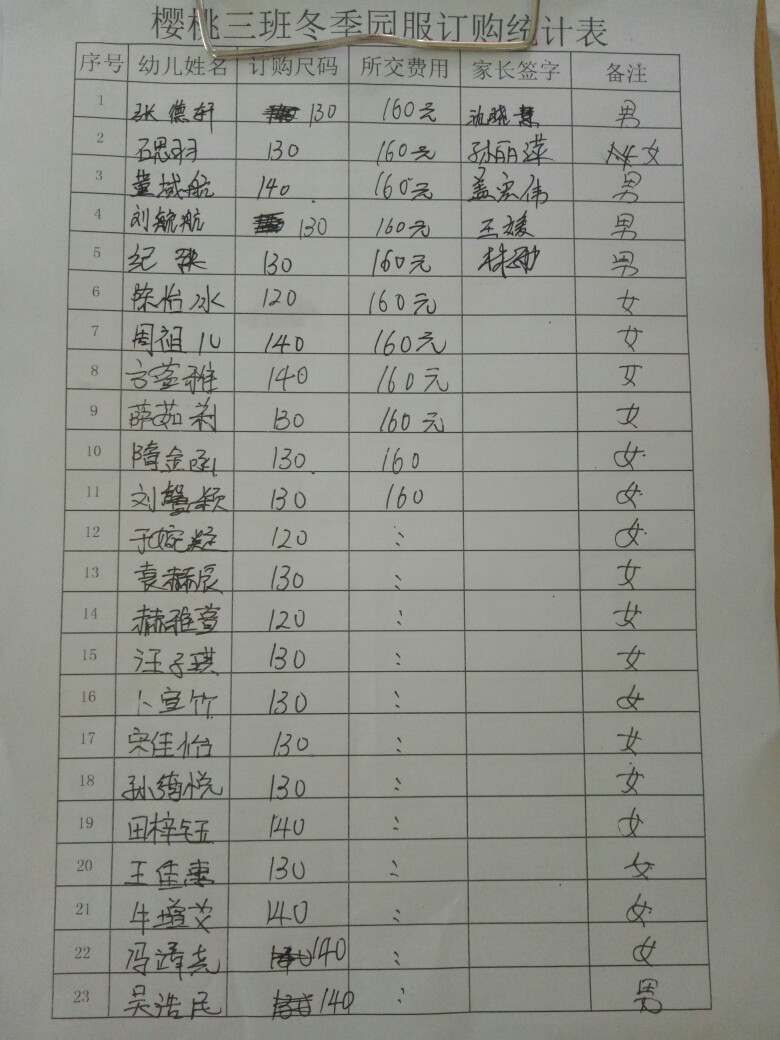 樱桃三班冬季园服订购统计表
序号 幼儿姓名 订购尺码 所交费用 家长签字 备注
1 张德轩 130 160元 男
2 石思羽 130 160元 孙丽萍 女
3 董域航 140 160元 盖宏伟 男
4 刘毓航 130 160元 王媛 男
5 纪 130 160元 男
6 徐怡冰 120 160元 女
7 周祖儿 140 160元 女
8 方荟雅 140 160元 女
9 薛茹莉 130 160元 女
10 隋金函 130 160 女
11 刘馨颖 130 160 女
12 于婉 120 : 女
13 袁赫辰 130 : 女
14 赫雅萱 120 : 女
15 汪子琪 130 : 女
16 卜宣竹 130 : 女
17 宋佳怡 130 : 女
18 孙绮悦 130 : 女
19 田梓钰 140 : 女
20 王佳惠 130 : 女
21 牛瑄艾 140 : 女
22 冯译尧 140 : 女
23 吴浩民 140 : 男